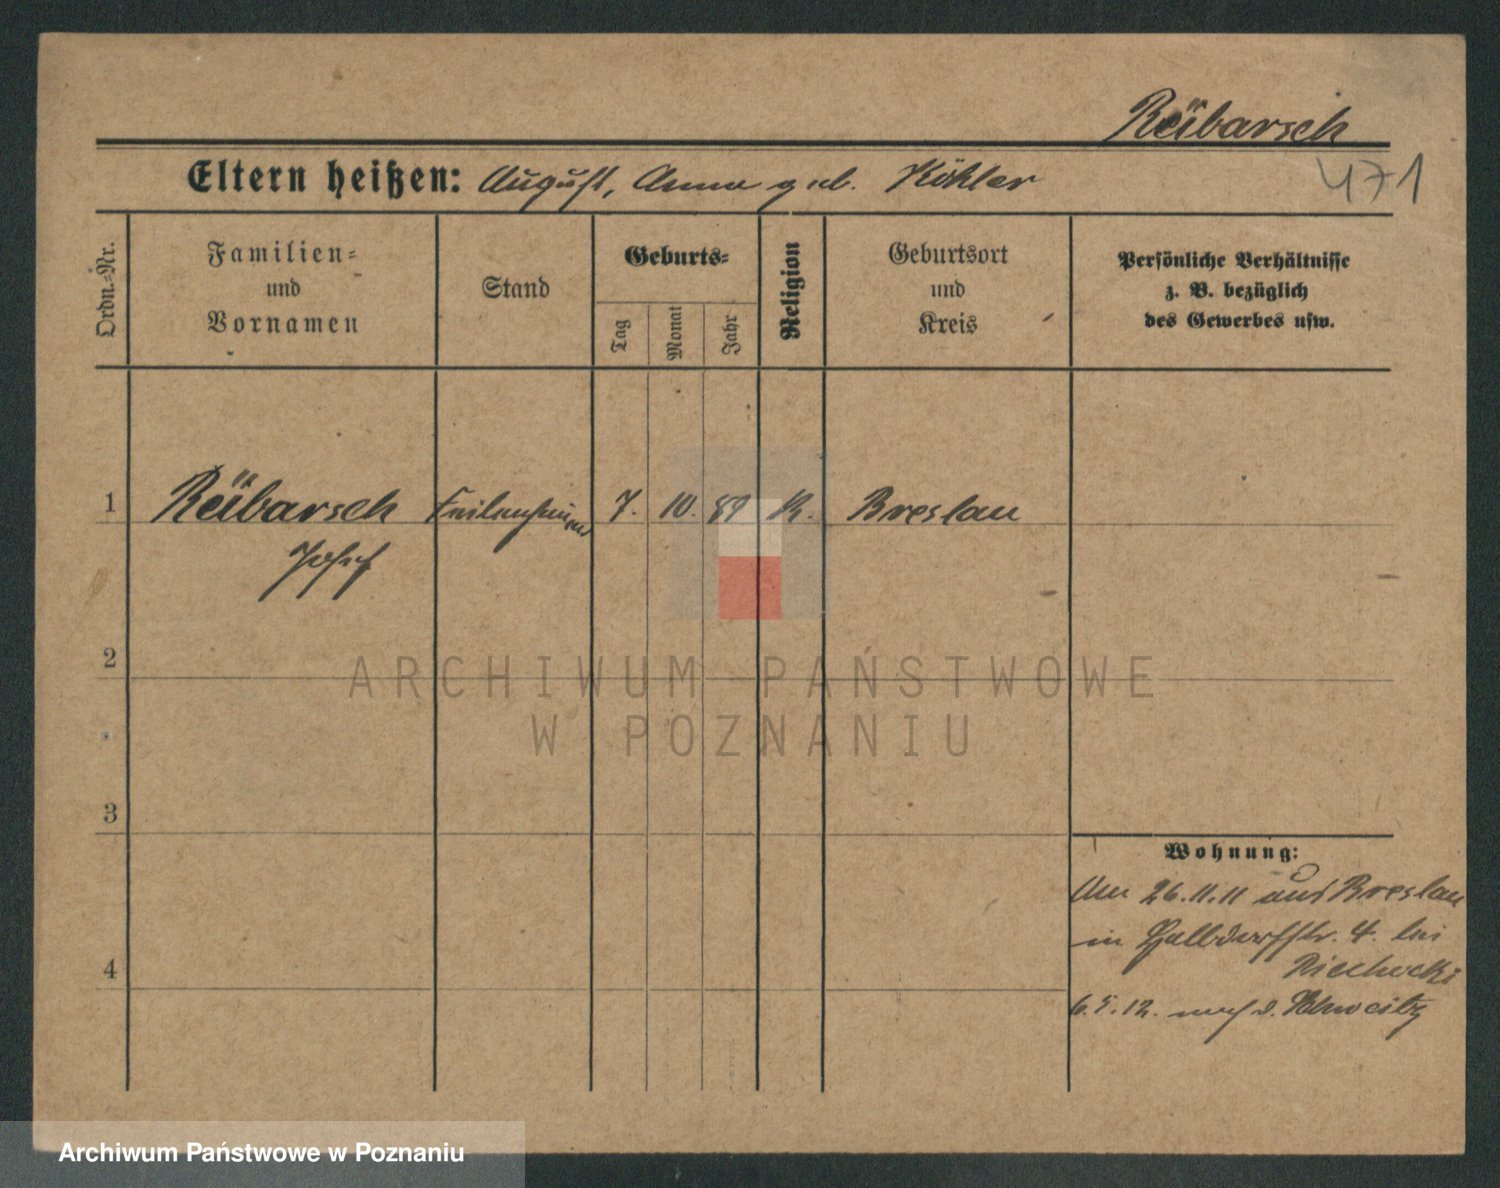 Reibarsch
471
Eltern heißen: August, Anna geb. Köhler
Ordn.-Nr.
Familien-
und
Vornamen
Stand
Geburts-
Tag
Monat
Jahr
Religion
Geburtsort
und
Kreis
Persönliche Verhältnisse
z. B. bezüglich
des Gewerbes usw.
1
Reibarsch
Josef
7. 10. 89
K.
Breslau
2
3
4
Wohnung:
Am 26.11.11 aus Breslau
in Halbdorfstr. 4. bei
Piechocki
6.5.12. nach d. Schweitz
ARCHIWUM PAŃSTWOWE
W POZNANIU
Archiwum Państwowe w Poznaniu